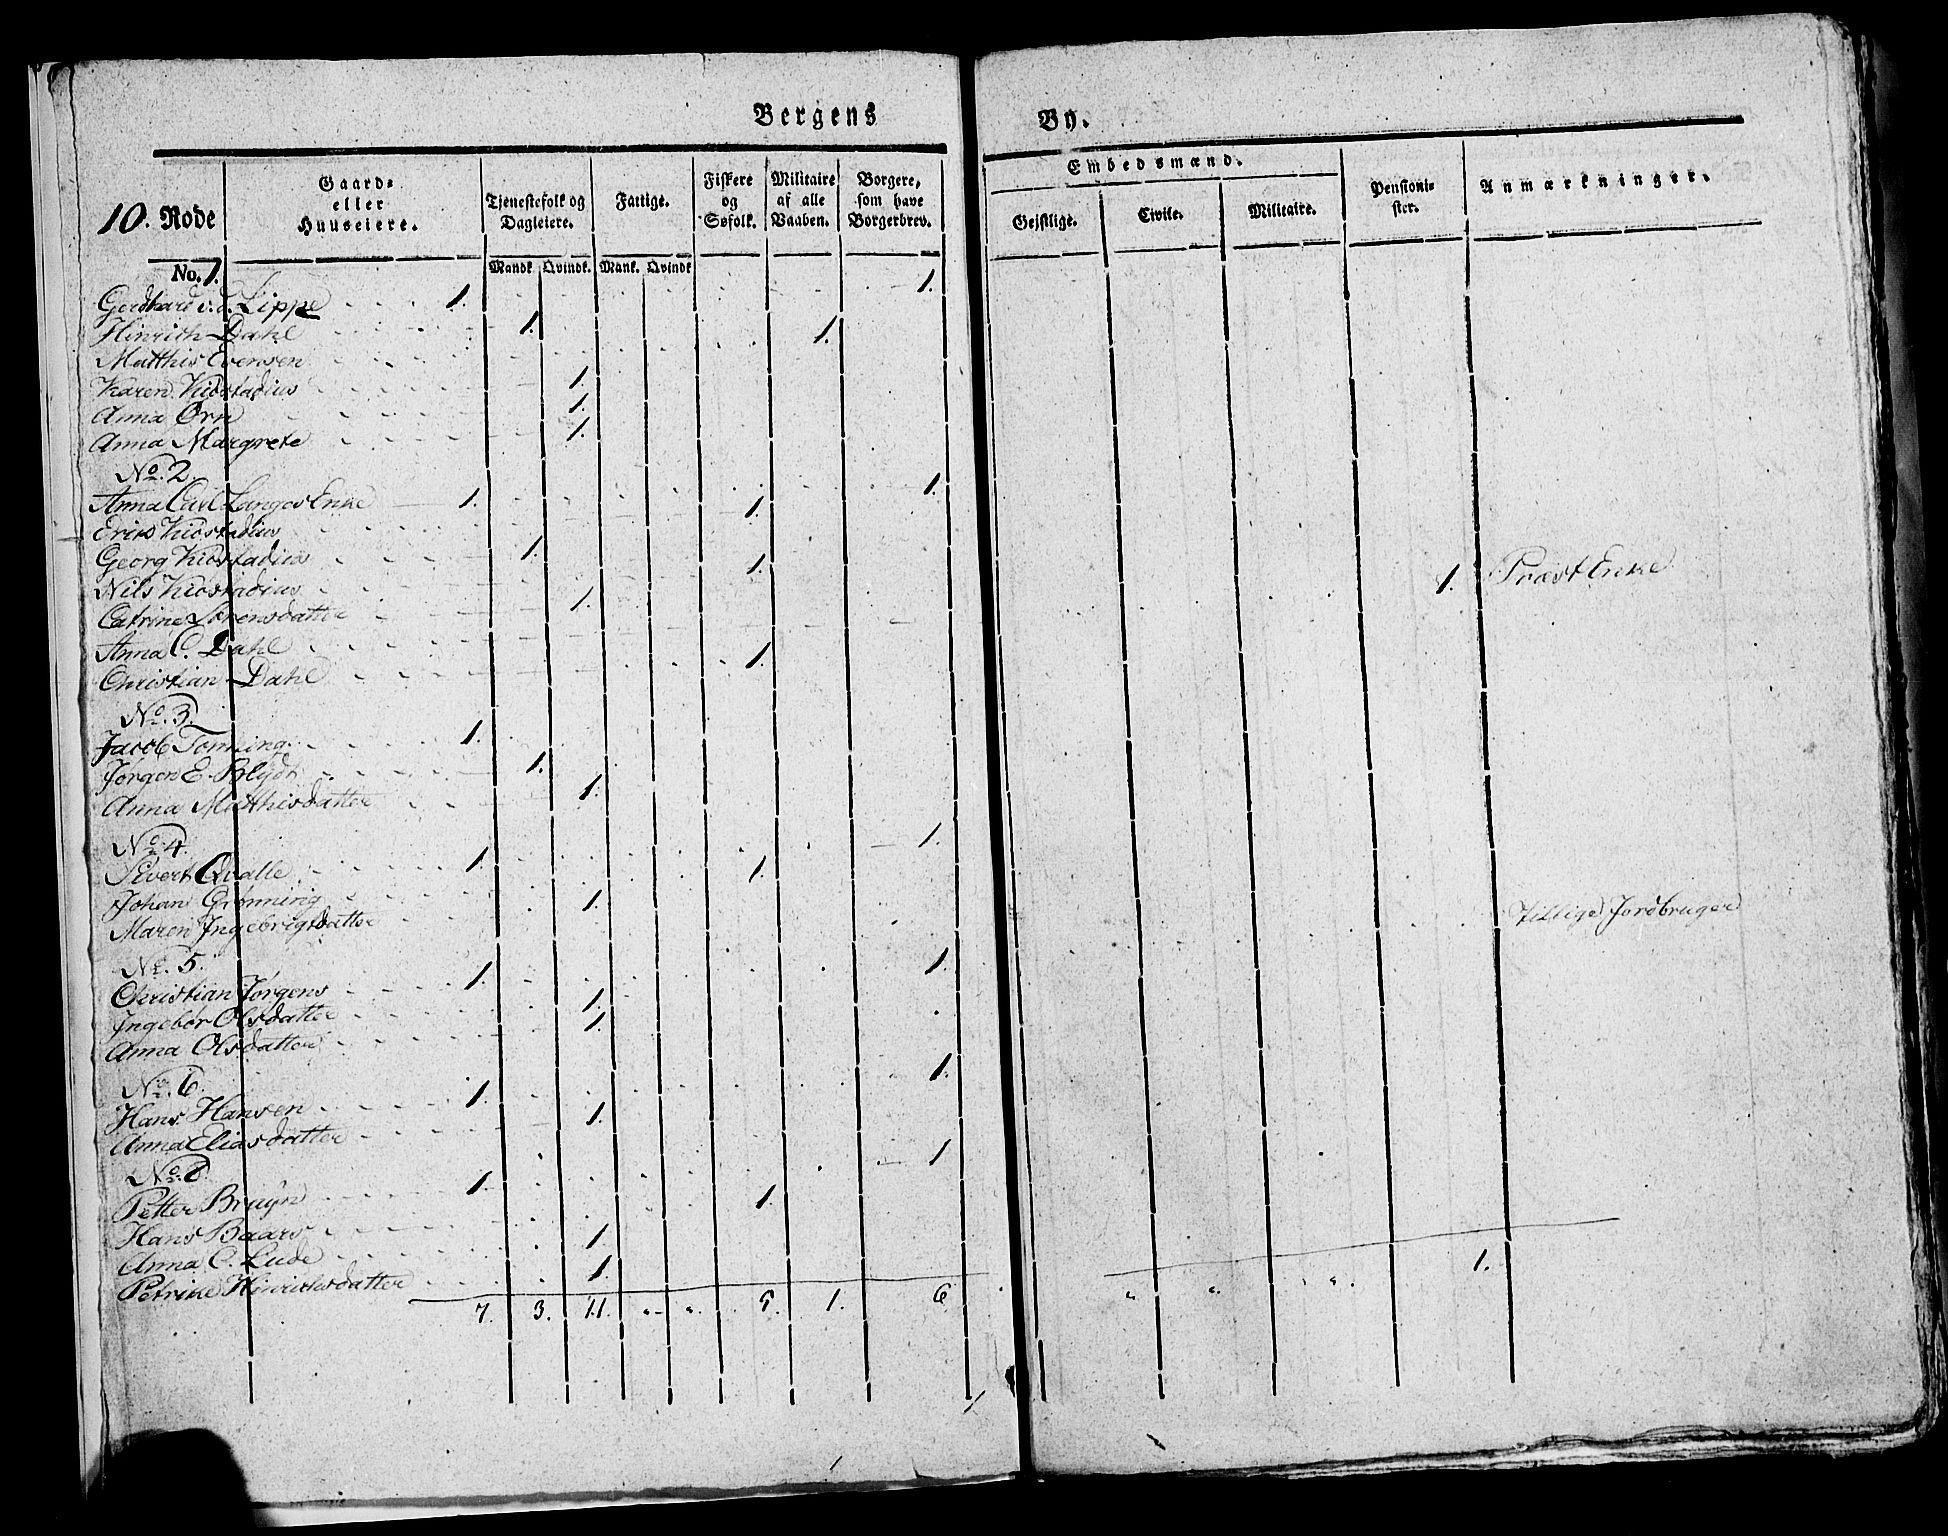 Bergens By.
10. Rode
Gaard- eller Huuseiere.
Tjenestefolk og Dagleiere.
Fattige.
Fiskere og Søfolk.
Militaire af alle Vaaben.
Borgere, som have Borgerbrev.
Embedsmænd.
Gejstlige. Civile. Militaire.
Pensionister.
Anmærkninger.
Mandk Qvindk. Mank. Qvindk
No. 1.
Gerdhard v. d. Lippe 1. 1.
Hinrich Dahl 1.
Matthis Evensen 1.
Karen Kiostadius 1.
Anna Ørn 1.
Anna Margrete 1.
No. 2.
Anna Carl Langes Enke 1. 1.
Erik Kiostadius 1.
Georg Kiostadius 1.
Nils Kiostadius 1.
Catrine Sørensdatter 1.
Anna C. Dahl 1. Præst Enke
Christian Dahl 1.
No. 3.
Jacob Tonning 1.
Jørgen E. Blydt 1.
Anna Matthisdatter 1.
No. 4.
Sivert Qvalle 1. 1.
Johan Grønning 1.
Maren Ingebrigtsdatter 1.
No. 5.
Christian Jørgens 1. 1. Tillige Jordbruger
Ingebor Olsdatter 1.
Anna Olsdatter 1.
No. 6.
Hans Hansen 1. 1.
Anna Eliasdatter 1.
No. 8
Petter Bruyn 1. 1
Hans Baars 1.
Anna C. Lude 1.
Petrine Hinrichsdatter 1.
7. 3. 11. " " 5. 1. 6 " " " 1.